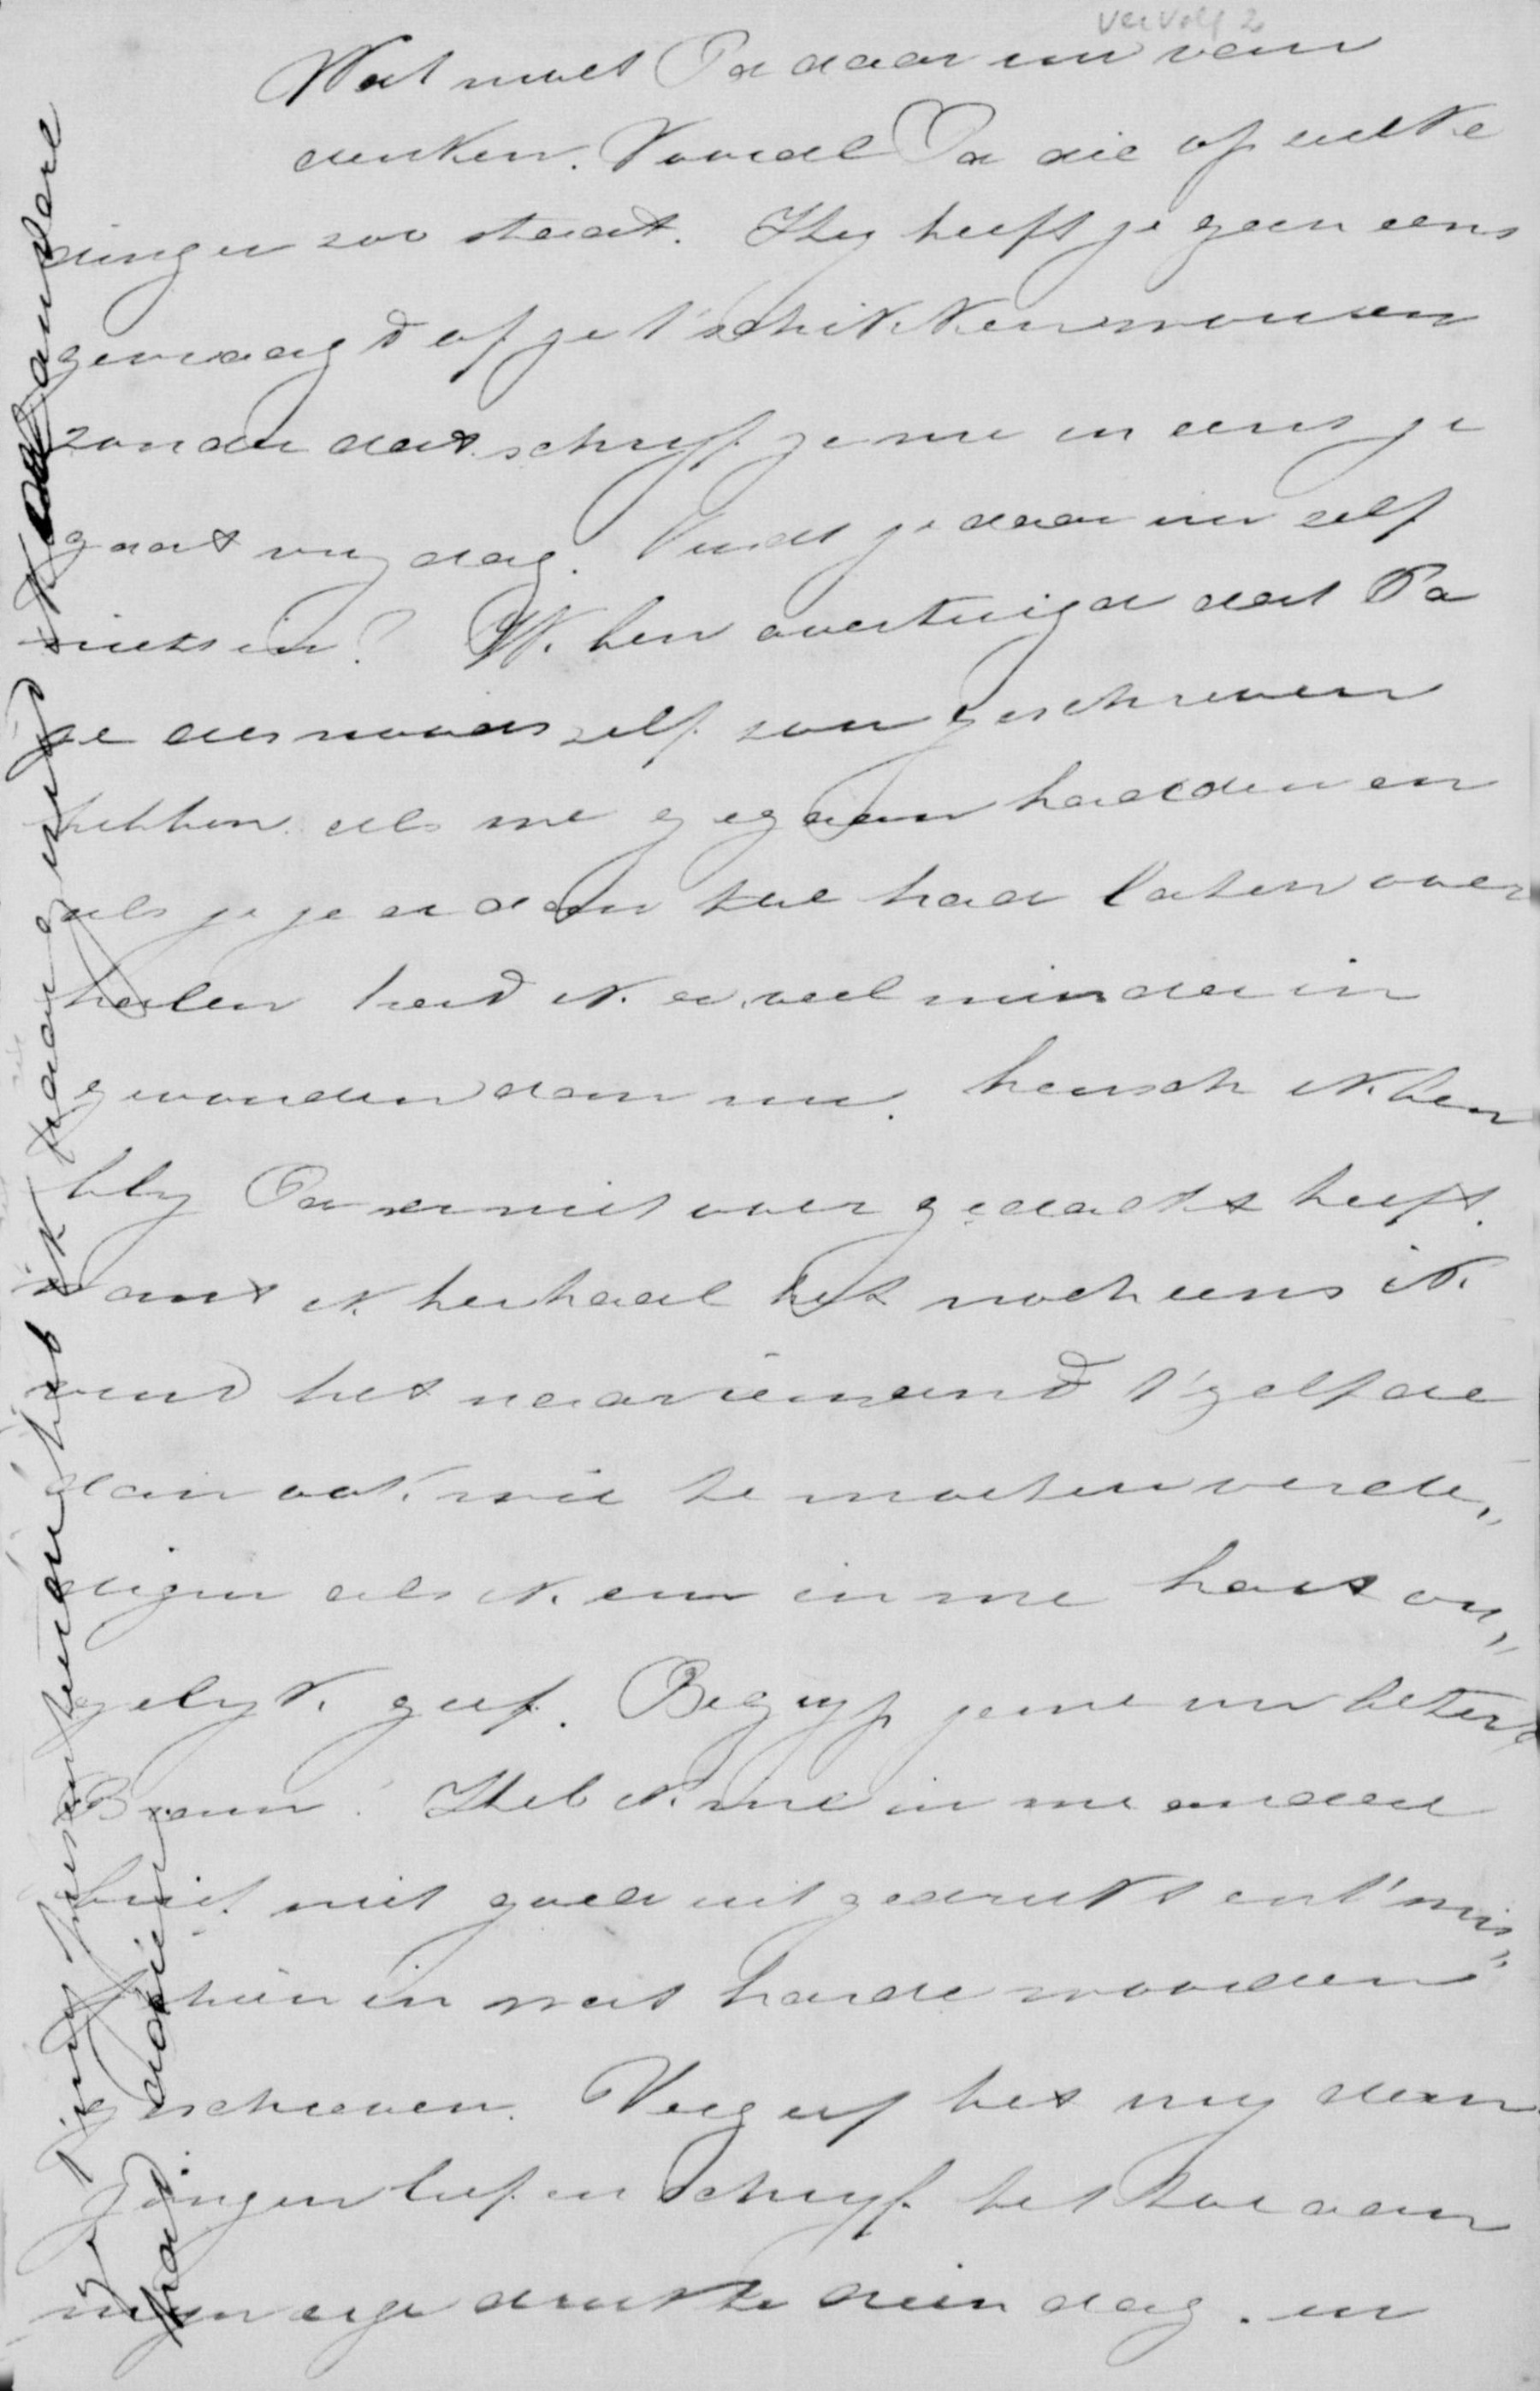 Vervolg 2
Wat moet Pa daar nu van
denken. Vooral Pa die op zulke
dingen zoo staat. Hy heeft je geen eens
gevraagd of je 't schikken wou en
zonder dat schryf je me in eens je
gaat vrydag. Vindt je daar nu zelf
niets in? Ik ben overtuigd dat Pa
je desnoods zelf zou geschreven
hebben als we gegaan hadden en
als je je er dan toe had laten over
halen had ik er veel minder in
gevonden dan nu. heusch ik ben
bly Pa er niet over gedacht heeft.
want ik herhaal het noch eens ik
vind het naar iemand 't zelfde
dan ook wie te moeten verde„
digen als ik em in me hart on„
gelyk geef. Begryp je me nu beter
Bram? Heb ik me in me andere
brief niet goed uitgedrukt en 't mis„
schien in wat harde woorden
geschreven. Vergeef het my dan
jongen lief en schryf het toe aan
myn erge drukke dien dag. en
je ring juist hieraan heb ik haar gezegd ik andere
had